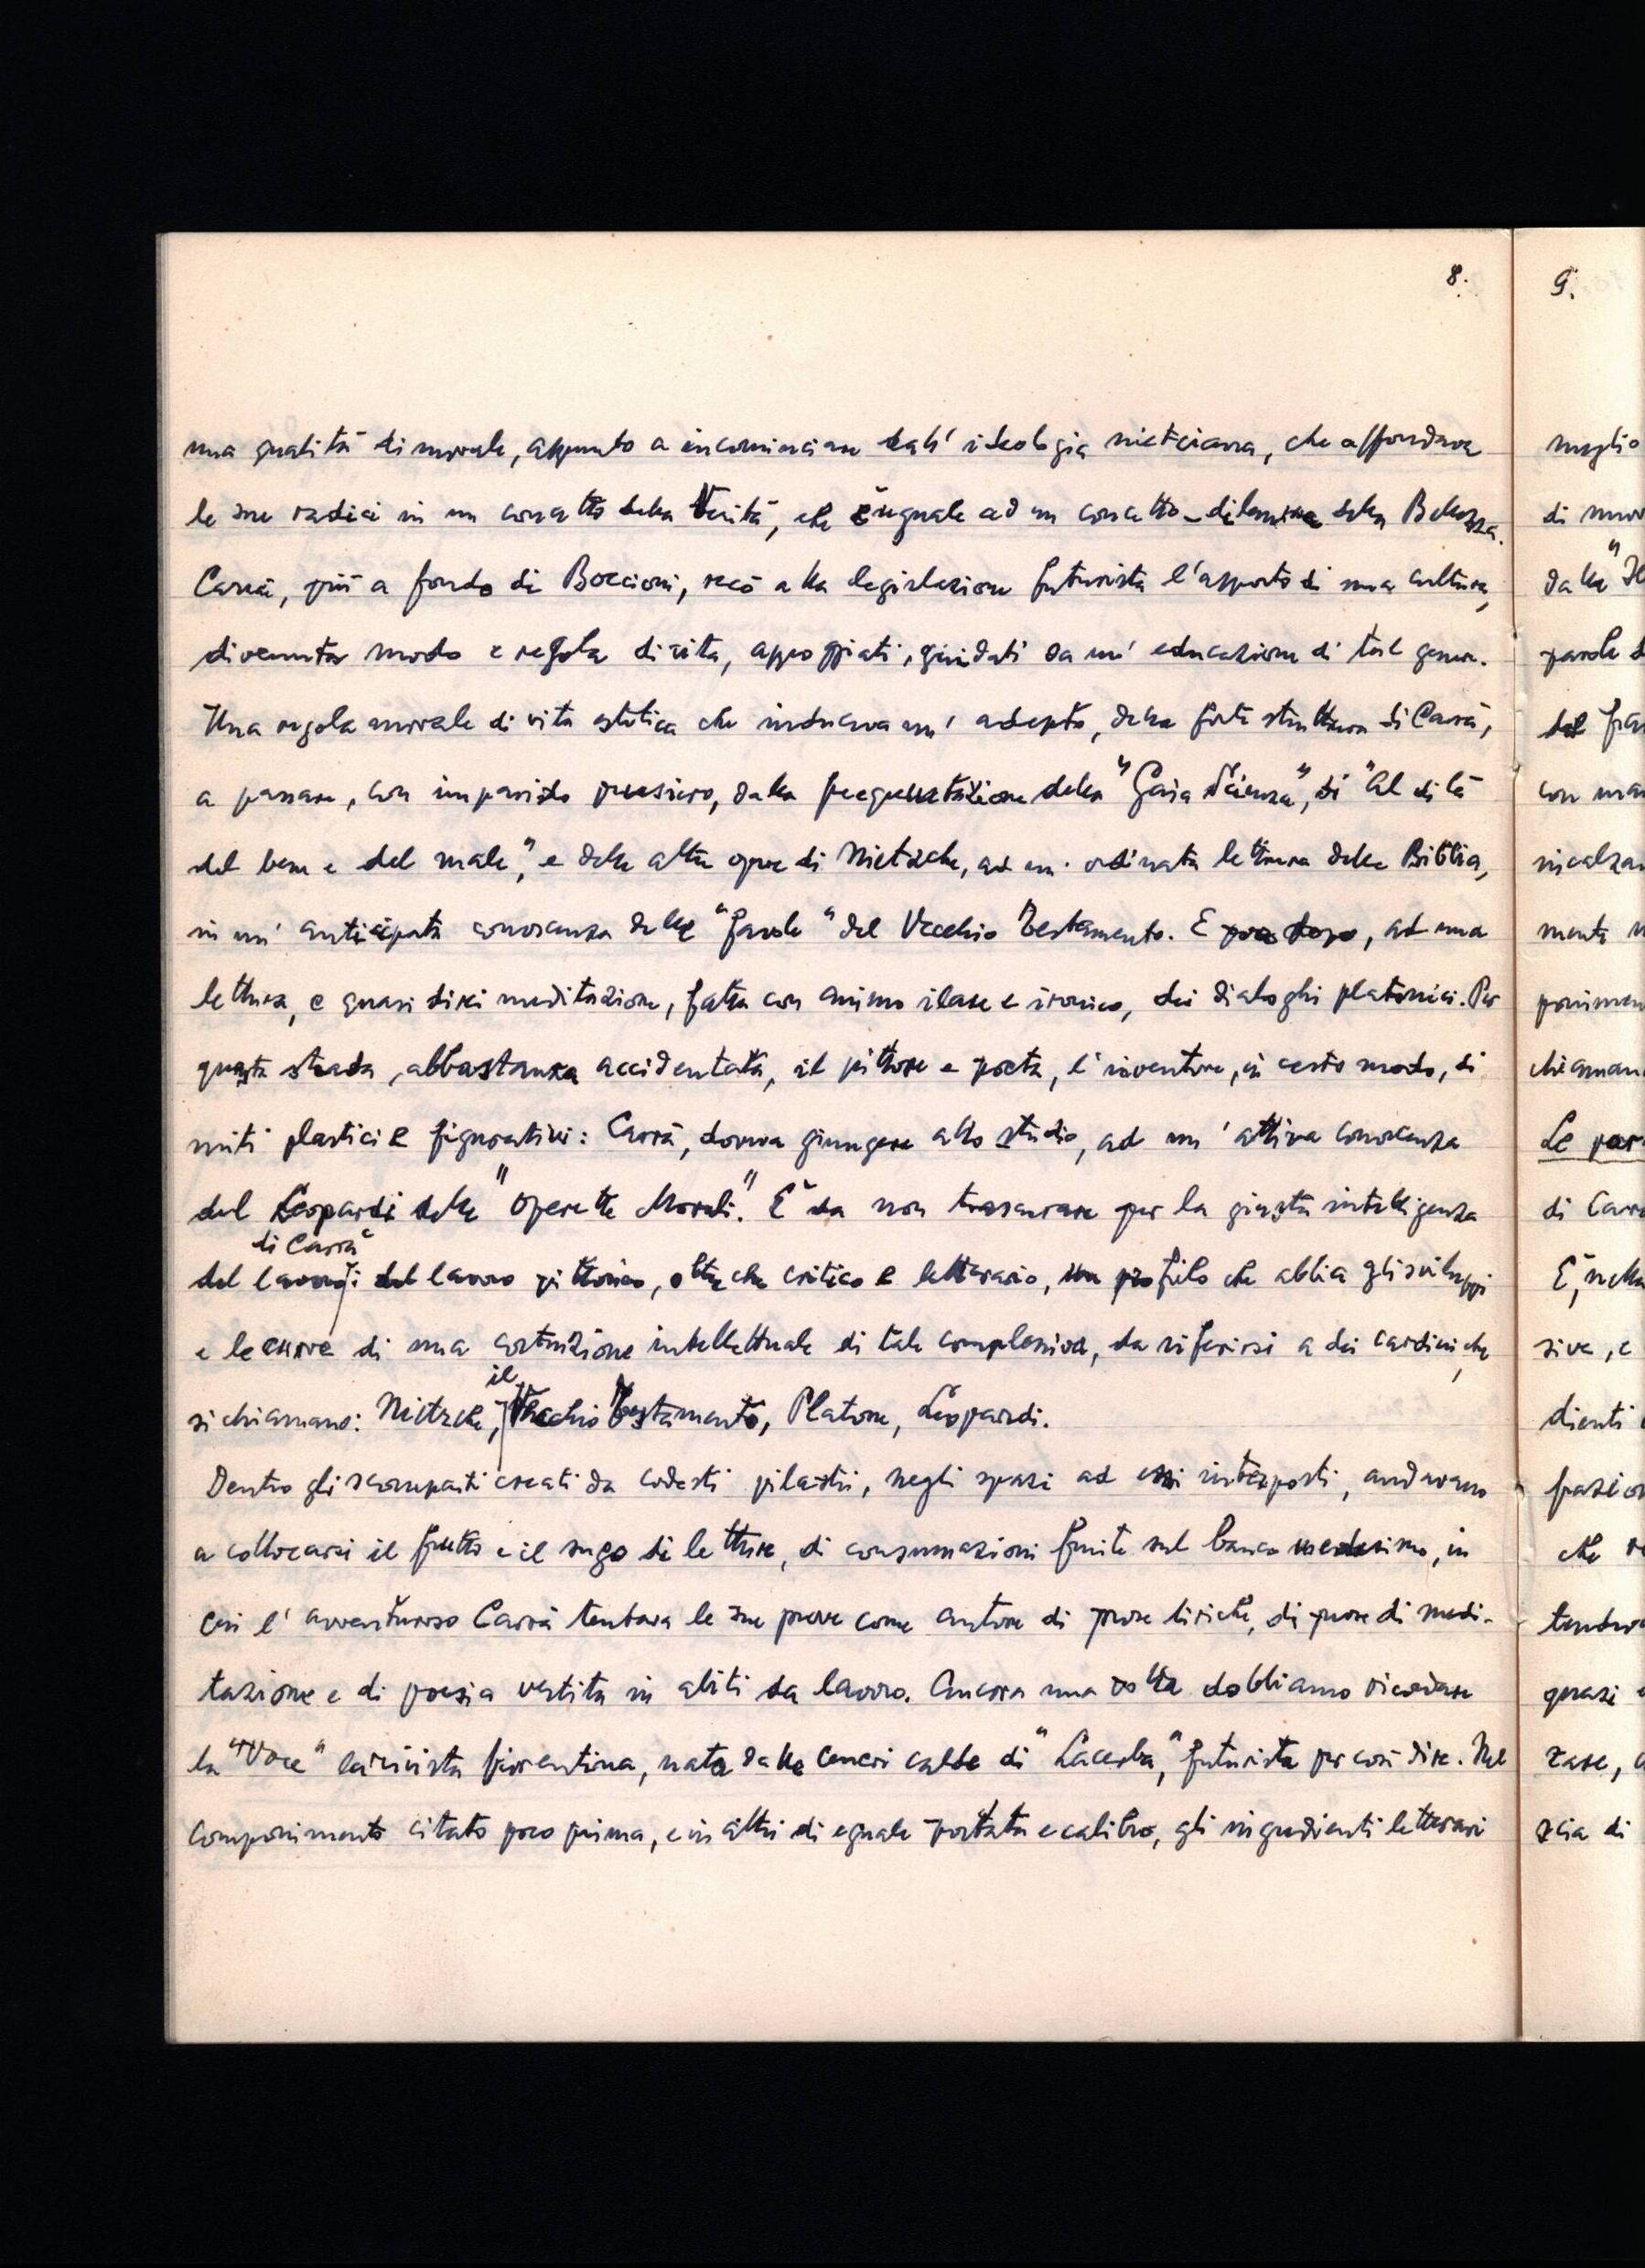 8.
una qualità di morale, appunto a incominciare dall' ideologia nietciana, che affondava
le sue radici in un concetto della Verità, che è uguale ad un concetto-dilemma della Bellezza.
Carrà, più a fondo di Boccioni, recò alla legislazione futurista l'apporto di una cultura,
divenuta modo e regola di vita, appoggiati, guidati da un' educazione di tal genere.
Una regola morale di vita estetica che induceva un' adepto, della forte struttura di Carrà,
a passare, con impavido pensiero, dalla frequentazione della "Gaia Scienza", di "Al di là
del bene e del male", e delle altre opere di Nietzche, ad un' ordinata lettura della Bibbia,
in un' anticipata conoscenza delle "favole" del Vecchio Testamento. E poco dopo, ad una
lettura, e quasi direi meditazione, fatta con animo ilare e ironico, dei dialoghi platonici. Per
questa strada, abbastanza accidentata, il pittore e poeta, l'inventore, in certo modo, di
miti plastici e figurativi: Carrà, doveva giungere allo studio, ad un' attiva conoscenza
del Leopardi delle "Operette Morali". È da non trascurare per la giusta intelligenza
di Carrà
del lavoro; del lavoro pittorico, oltre che critico e letterario, un profilo che abbia gli sviluppi
e le curve di una costruzione intellettuale di tale complessiva, da riferirsi a dei cardini, che
il
si chiamano: Nietzche, Vecchio Testamento, Platone, Leopardi.
Dentro gli scomparti creati da codesti pilastri, negli spazi ad essi interposti, andavano
a collocarsi il frutto e il sugo di letture, di consumazioni finite sul banco medesimo, in
cui l' avventuroso Carrà tentava le sue prove come autore di prose liriche, di prose di medi-
tazione e di poesia vestita in abiti da lavoro. Ancora una volta dobbiamo ricordare
la "Voce" la rivista fiorentina, nata dalle ceneri calde di "Lacerba", futurista per così dire. Nel
componimento citato poco prima, e in altri di eguale portata e calibro, gli ingredienti letterari
9.
meglio
di
dalle
parole
del
con
rincalzan
mente
ponimen
chiaman
Le par
di Carr
È, nella
sive, e
dienti
fazion
che
tendere
quasi
zare,
scia di